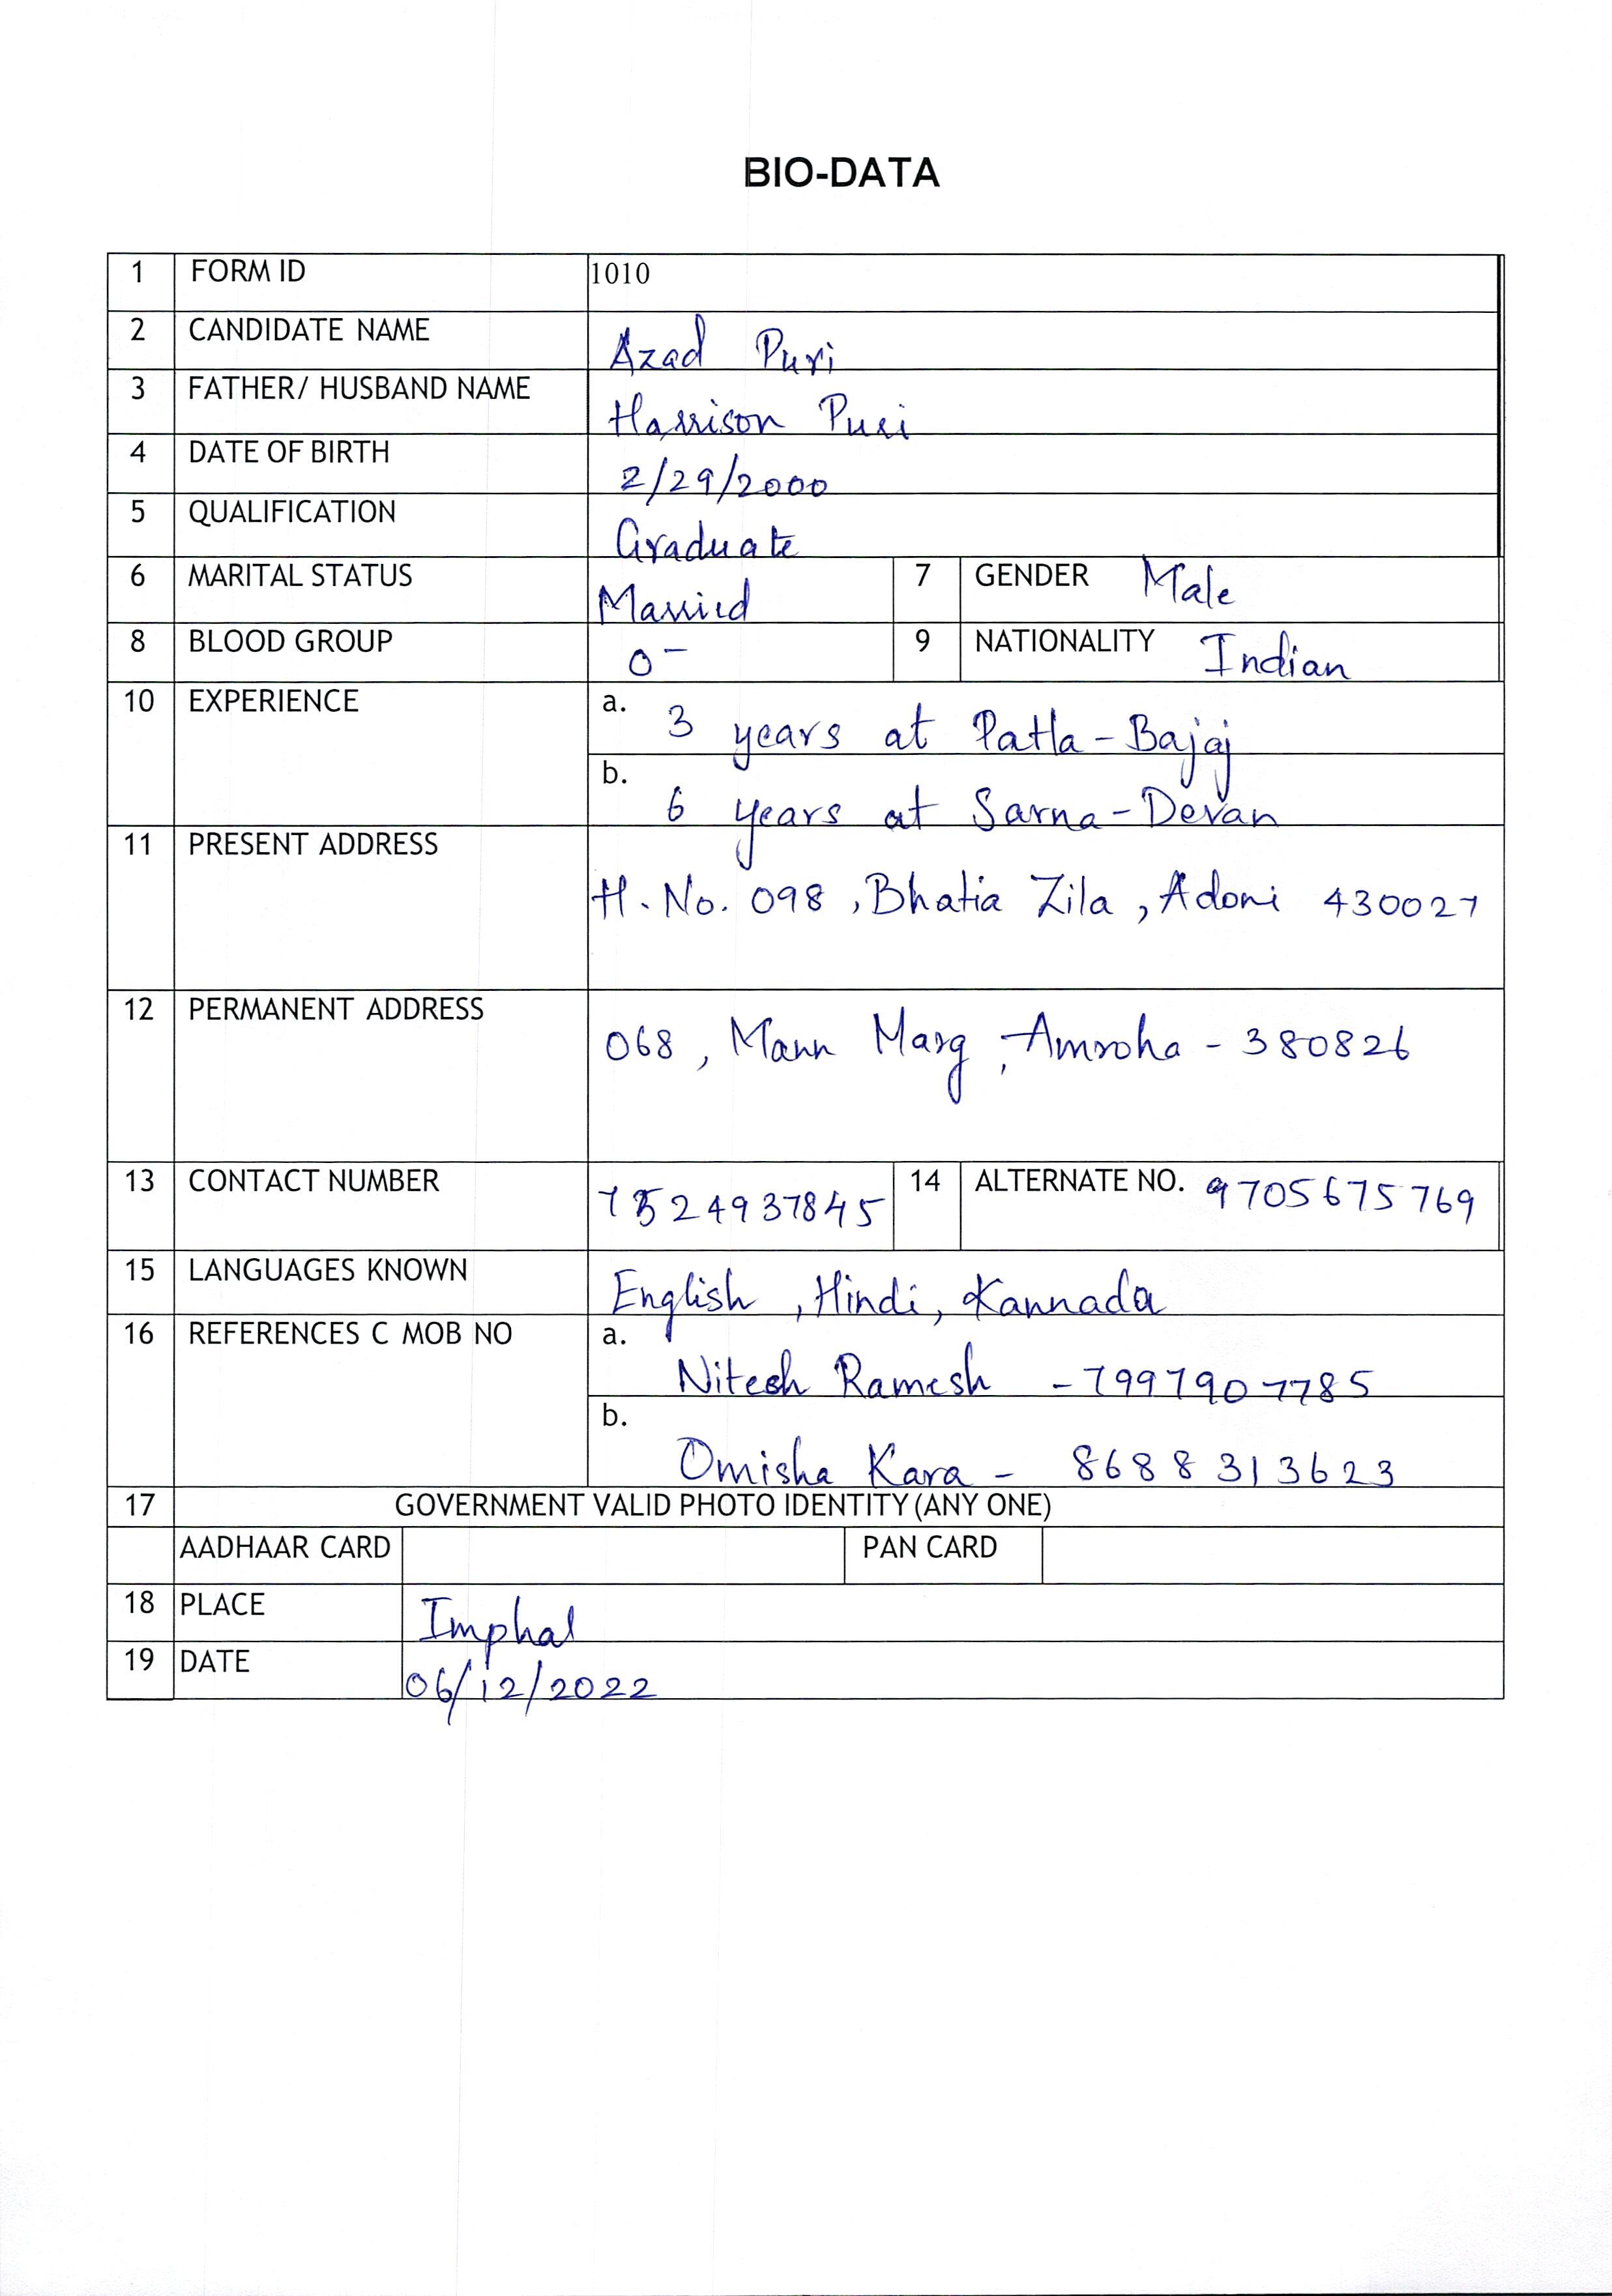 BIO-DATA
1 FORM ID 1010
2 CANDIDATE NAME Azad Puri
3 FATHER/ HUSBAND NAME Harrison Puri
4 DATE OF BIRTH 2/29/2000
5 QUALIFICATION Graduate
6 MARITAL STATUS Married 7 GENDER Male
8 BLOOD GROUP O- 9 NATIONALITY Indian
10 EXPERIENCE a. 3 years at Patla-Bajaj
b. 6 years at Sarna-Devan
11 PRESENT ADDRESS
H.No. 098, Bhatia Zila, Adoni 430027
12 PERMANENT ADDRESS
068, Mann Marg, Amroha - 380826
13 CONTACT NUMBER 7524937845 14 ALTERNATE NO. 9705675769
15 LANGUAGES KNOWN English, Hindi, Kannada
16 REFERENCES C MOB NO a.
Nitesh Ramesh - 7997907785
b.
Omisha Kara - 8688313623
17 GOVERNMENT VALID PHOTO IDENTITY (ANY ONE)
AADHAAR CARD PAN CARD
18 PLACE Imphal
19 DATE 06/12/2022